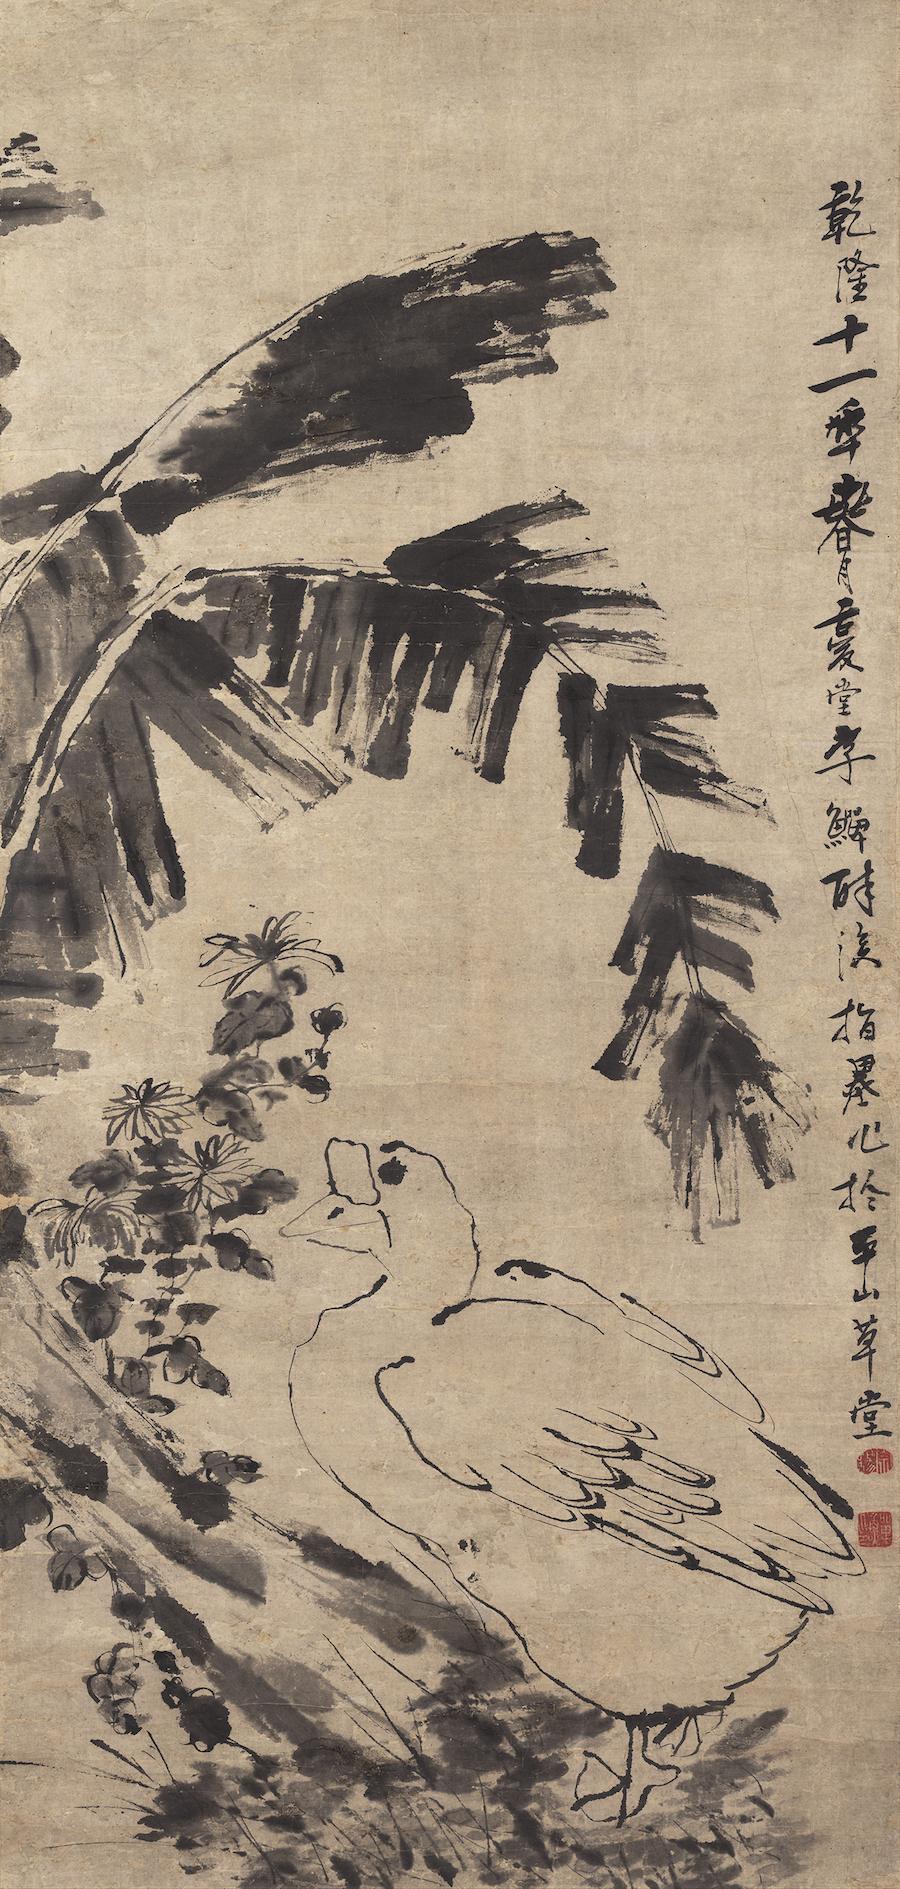 乾隆十一年春月夏堂李鱓醉後指墨作於平山草堂